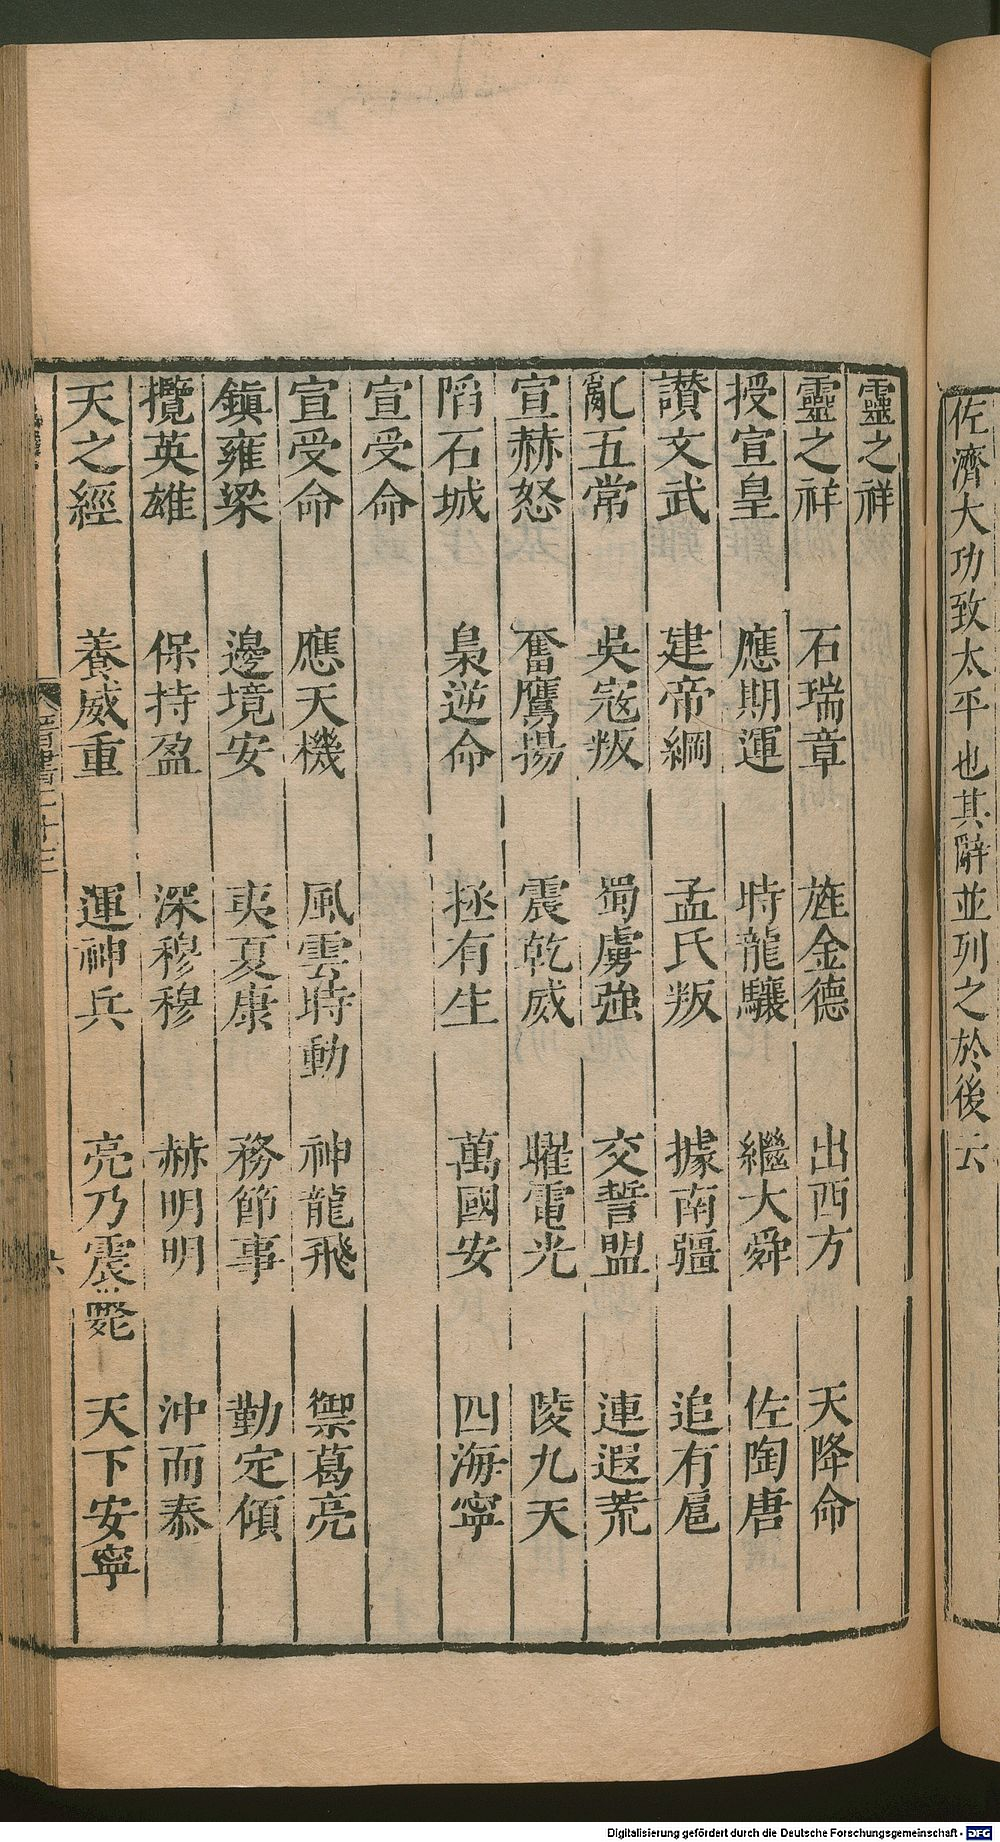 佐濟大功致太平也其辭並列之於後云
靈之祥
靈之祥　石瑞章　旌金德　出西方　天降命
授宣皇　應期運　時龍驤　繼大舜　佐陶唐
讃文武　建帝綱　孟氏叛　據南疆　追有扈
亂五常　吳寇叛　蜀虜強　交誓盟　連遐荒
宣赫怒　奮鷹揚　震乾威　曜電光　陵九天
䧟石城　梟逆命　拯有生　萬國安　四海寧
宣受命
宣受命　應天機　風雲時動　神龍飛　禦葛亮
鎭雍梁　邊境安　夷夏康　務節事　勤定傾
攬英雄　保持盈　深穆穆　赫明明　沖而泰
天之經　養威重　運神兵　亮乃震斃　天下安寧
晉書二十三
Digitalisierung gefördert durch die Deutsche Forschungsgemeinschaft - DFG